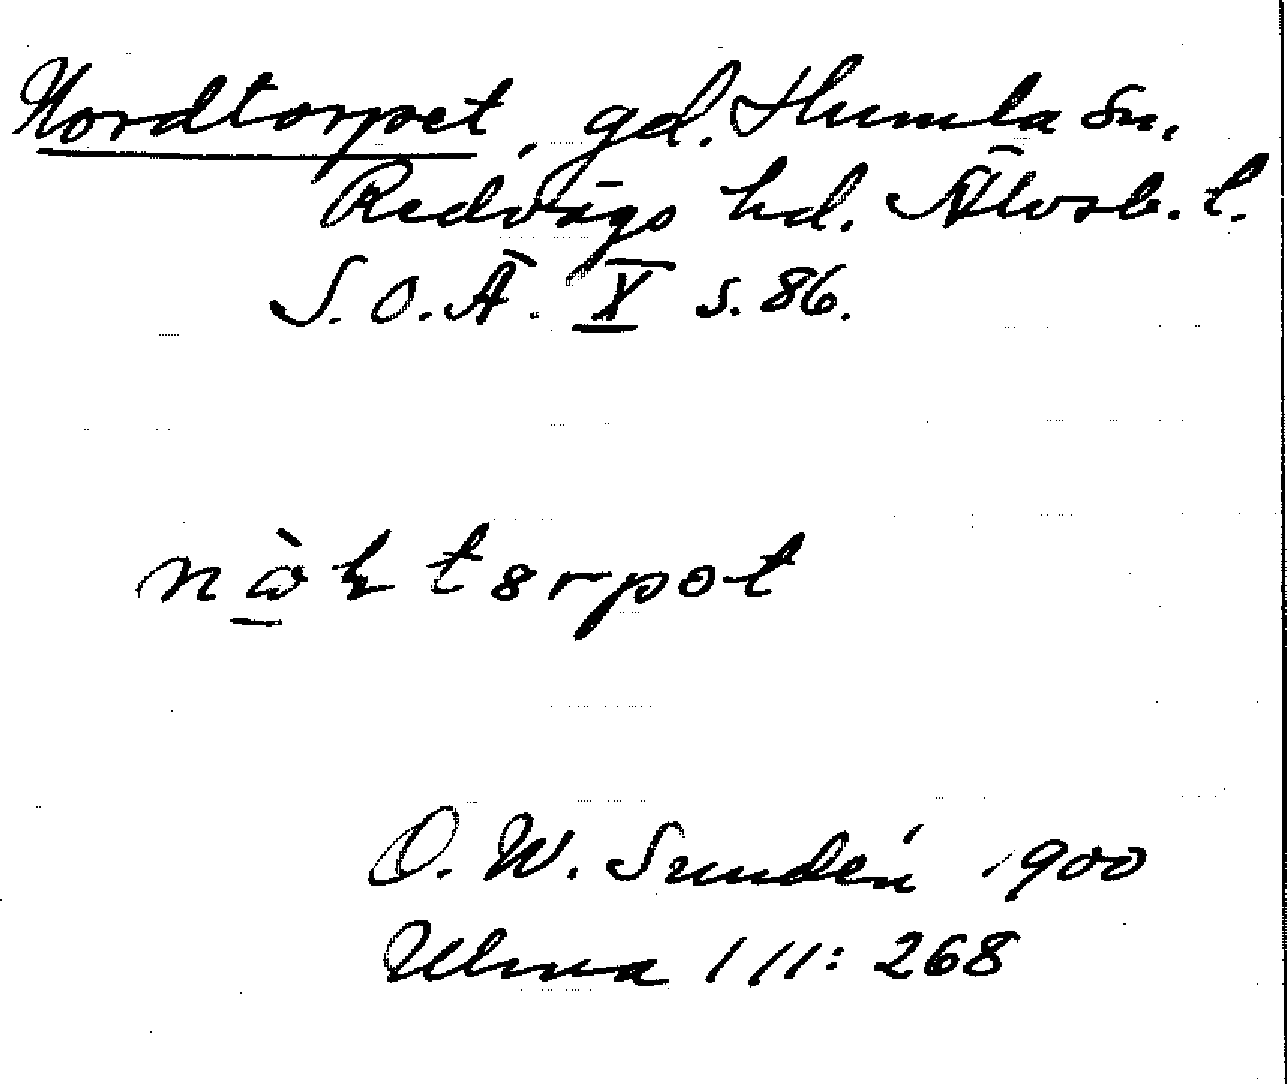 Nordtorpet, gd. Humla sn,
Redvägs hd. Älvsb. l.
S. O. Ä. X s. 86.
O. W. Sundén 1900
Ulma 111: 268